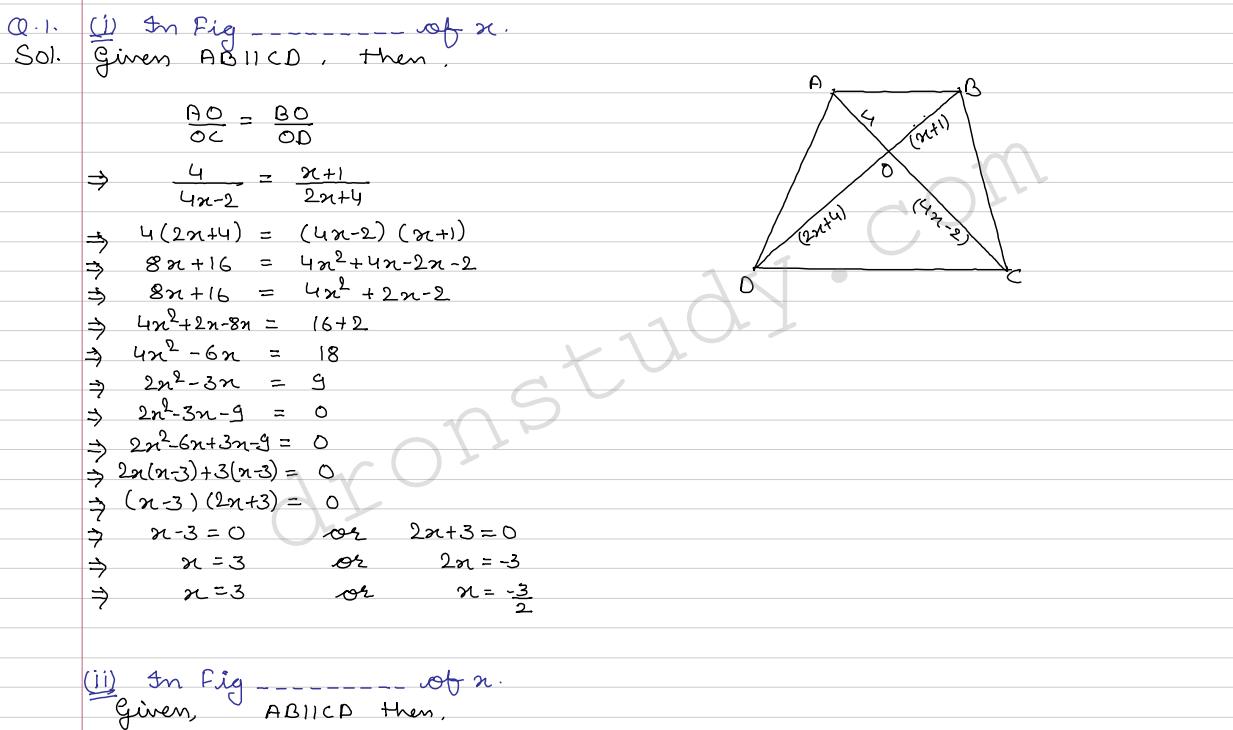 Q.1. (i) In Fig --------- of x.
Sol. Given AB||CD, then,
AO/OC = BO/OD
⇒ 4/(4x-2) = (x+1)/(2x+4)
⇒ 4(2x+4) = (4x-2) (x+1)
⇒ 8x+16 = 4x²+4x-2x-2
⇒ 8x+16 = 4x²+2x-2
⇒ 4x²+2x-8x = 16+2
⇒ 4x²-6x = 18
⇒ 2x²-3x = 9
⇒ 2x²-3x-9 = 0
⇒ 2x²-6x+3x-9 = 0
⇒ 2x(x-3)+3(x-3) = 0
⇒ (x-3)(2x+3) = 0
⇒ x-3=0 or 2x+3=0
⇒ x=3 or 2x=-3
⇒ x=3 or x=-3/2
A
B
4
(x+1)
O
(2x+4)
(4x-2)
D
C
dronstudy.com
(ii) In Fig --------- of x.
Given, AB||CD then,